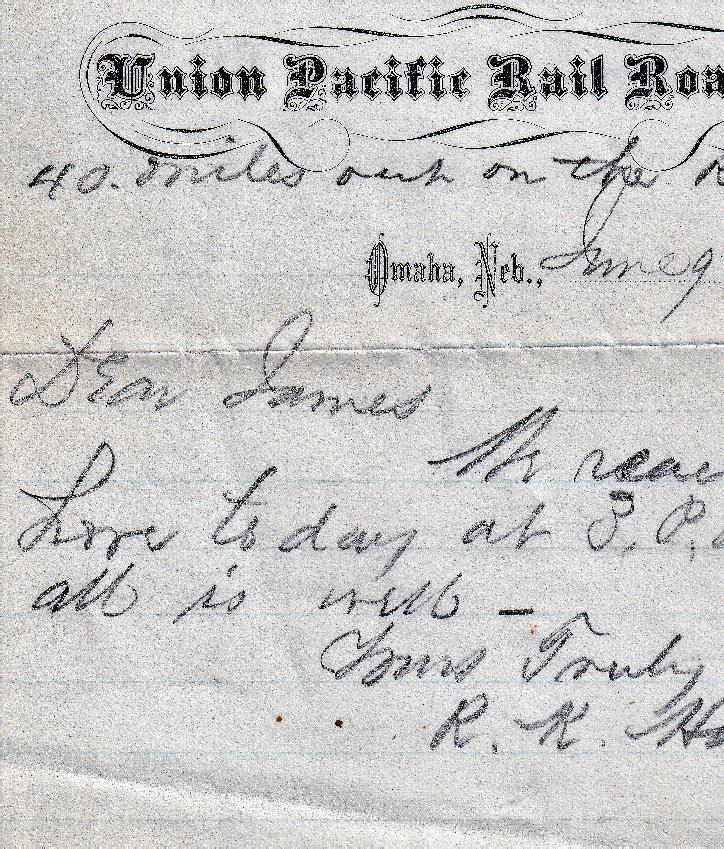 Union Pacific Rail Roa
40. miles out on the R
Omaha, Neb., June 9
Dear James
We reac
here to day at 3. P.
all is well –
Yours Truly
R. K. Ha